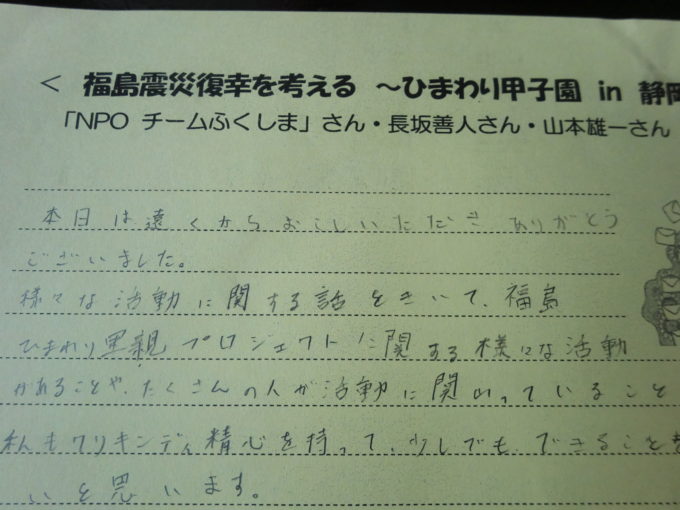 < 福島震災復幸を考える ～ひまわり甲子園 in 静岡
「NPO チームふくしま」さん・長坂善人さん・山本雄一さん
本日は遠くからおこしいただきありがとう
ございました。
様々な活動に関する話をきいて、福島
ひまわり里親プロジェクトに関する様々な活動
があることや、たくさんの人が活動に関わっていること
私もクリキンディ精心を持って、少しでも、できることを
いと思います。